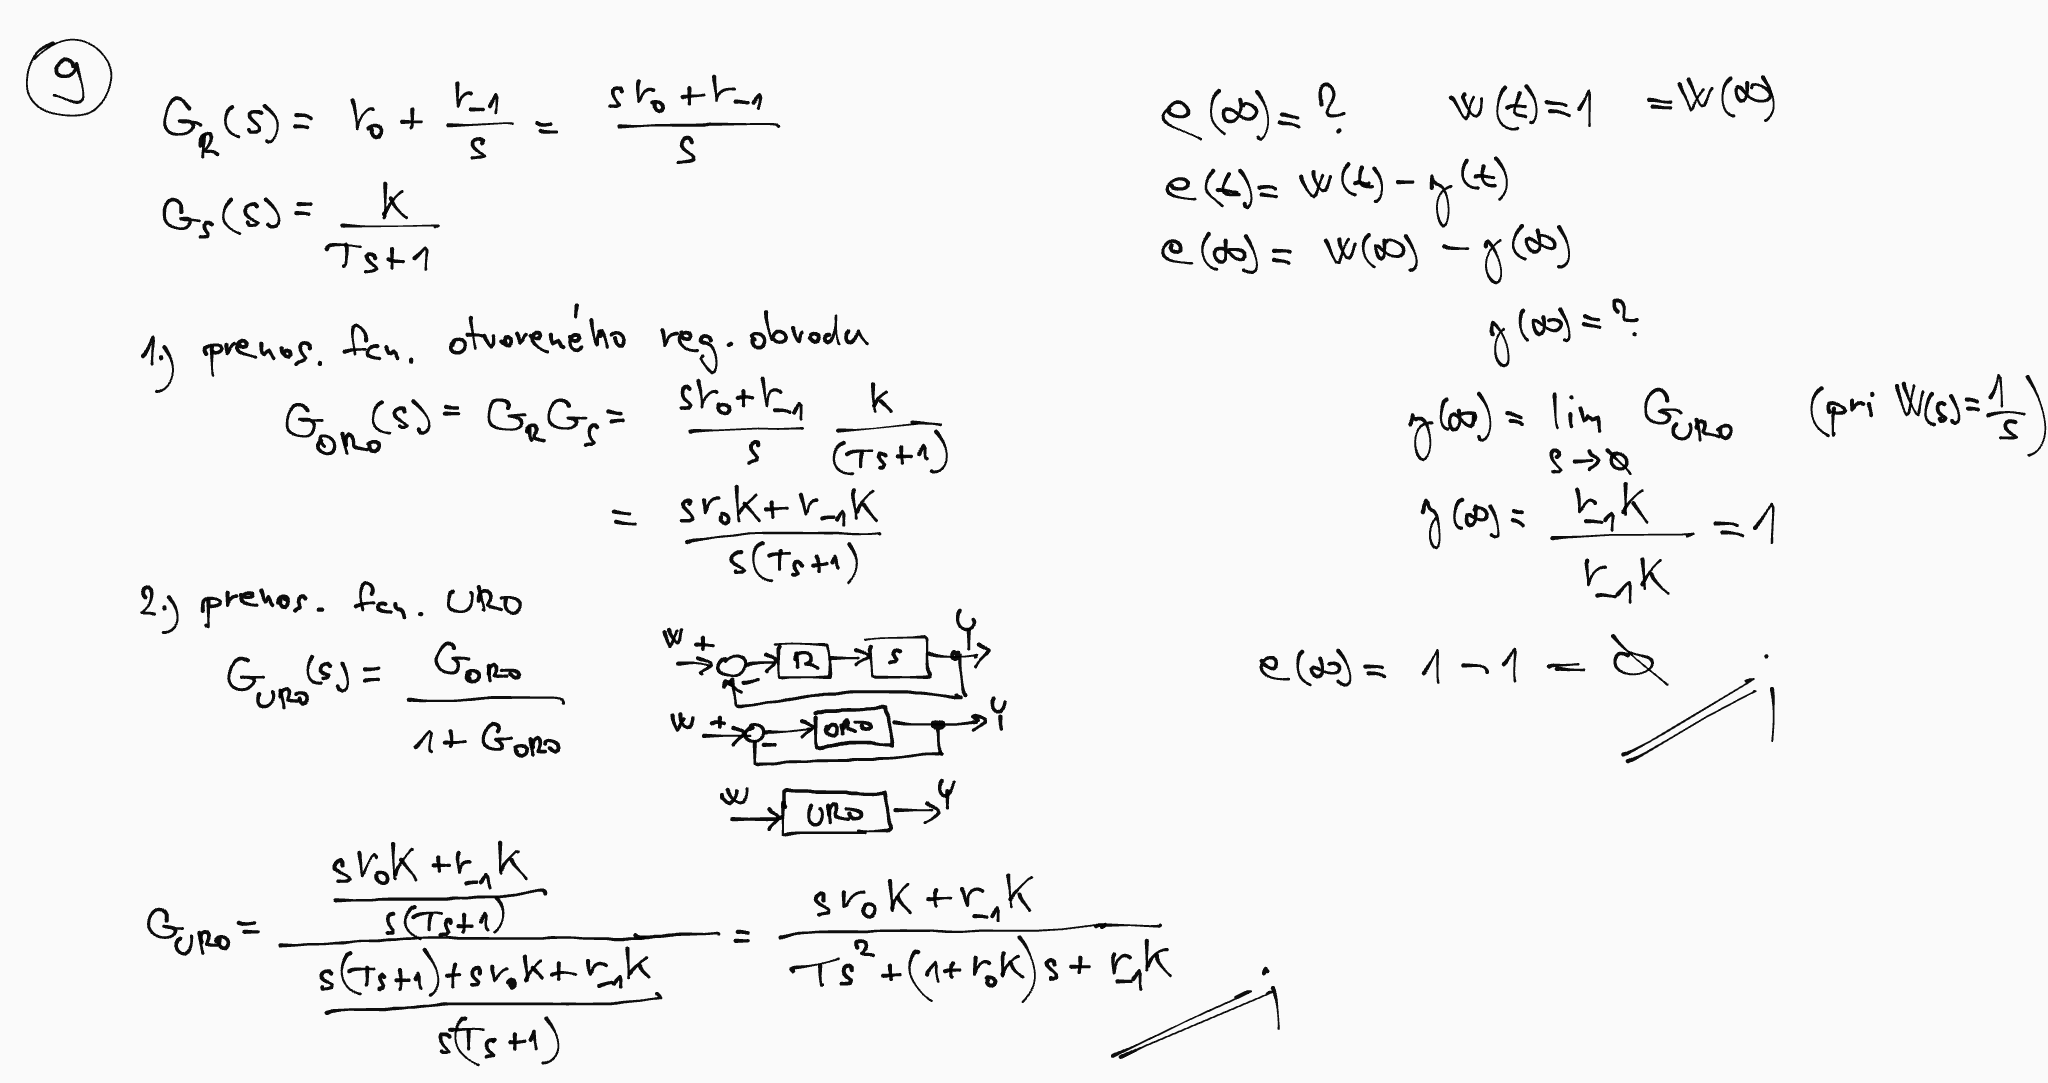 9
G_R(s) = r_0 + r_-1 / s = (s r_0 + r_-1) / s
G_S(s) = k / (Ts+1)
1.) prenos. fcn. otvoreného reg. obvodu
G_ORO(s) = G_R G_S = (s r_0 + r_-1) / s · k / (Ts+1)
= (s r_0 k + r_-1 k) / (s(Ts+1))
2.) prenos. fcn. URO
G_URO(s) = G_ORO / (1 + G_ORO)
W + - R S Y
W + - ORO Y
W URO Y
G_URO = ((s r_0 k + r_-1 k) / (s(Ts+1))) / ((s(Ts+1) + s r_0 k + r_-1 k) / (s(Ts+1))) = (s r_0 k + r_-1 k) / (Ts² + (1 + r_0 k)s + r_-1 k)
e(∞) = ? w(t) = 1 = w(∞)
e(t) = w(t) - y(t)
e(∞) = w(∞) - y(∞)
y(∞) = ?
y(∞) = lim s→0 G_URO (pri W(s) = 1/s)
y(∞) = r_-1 k / r_-1 k = 1
e(∞) = 1 - 1 = 0